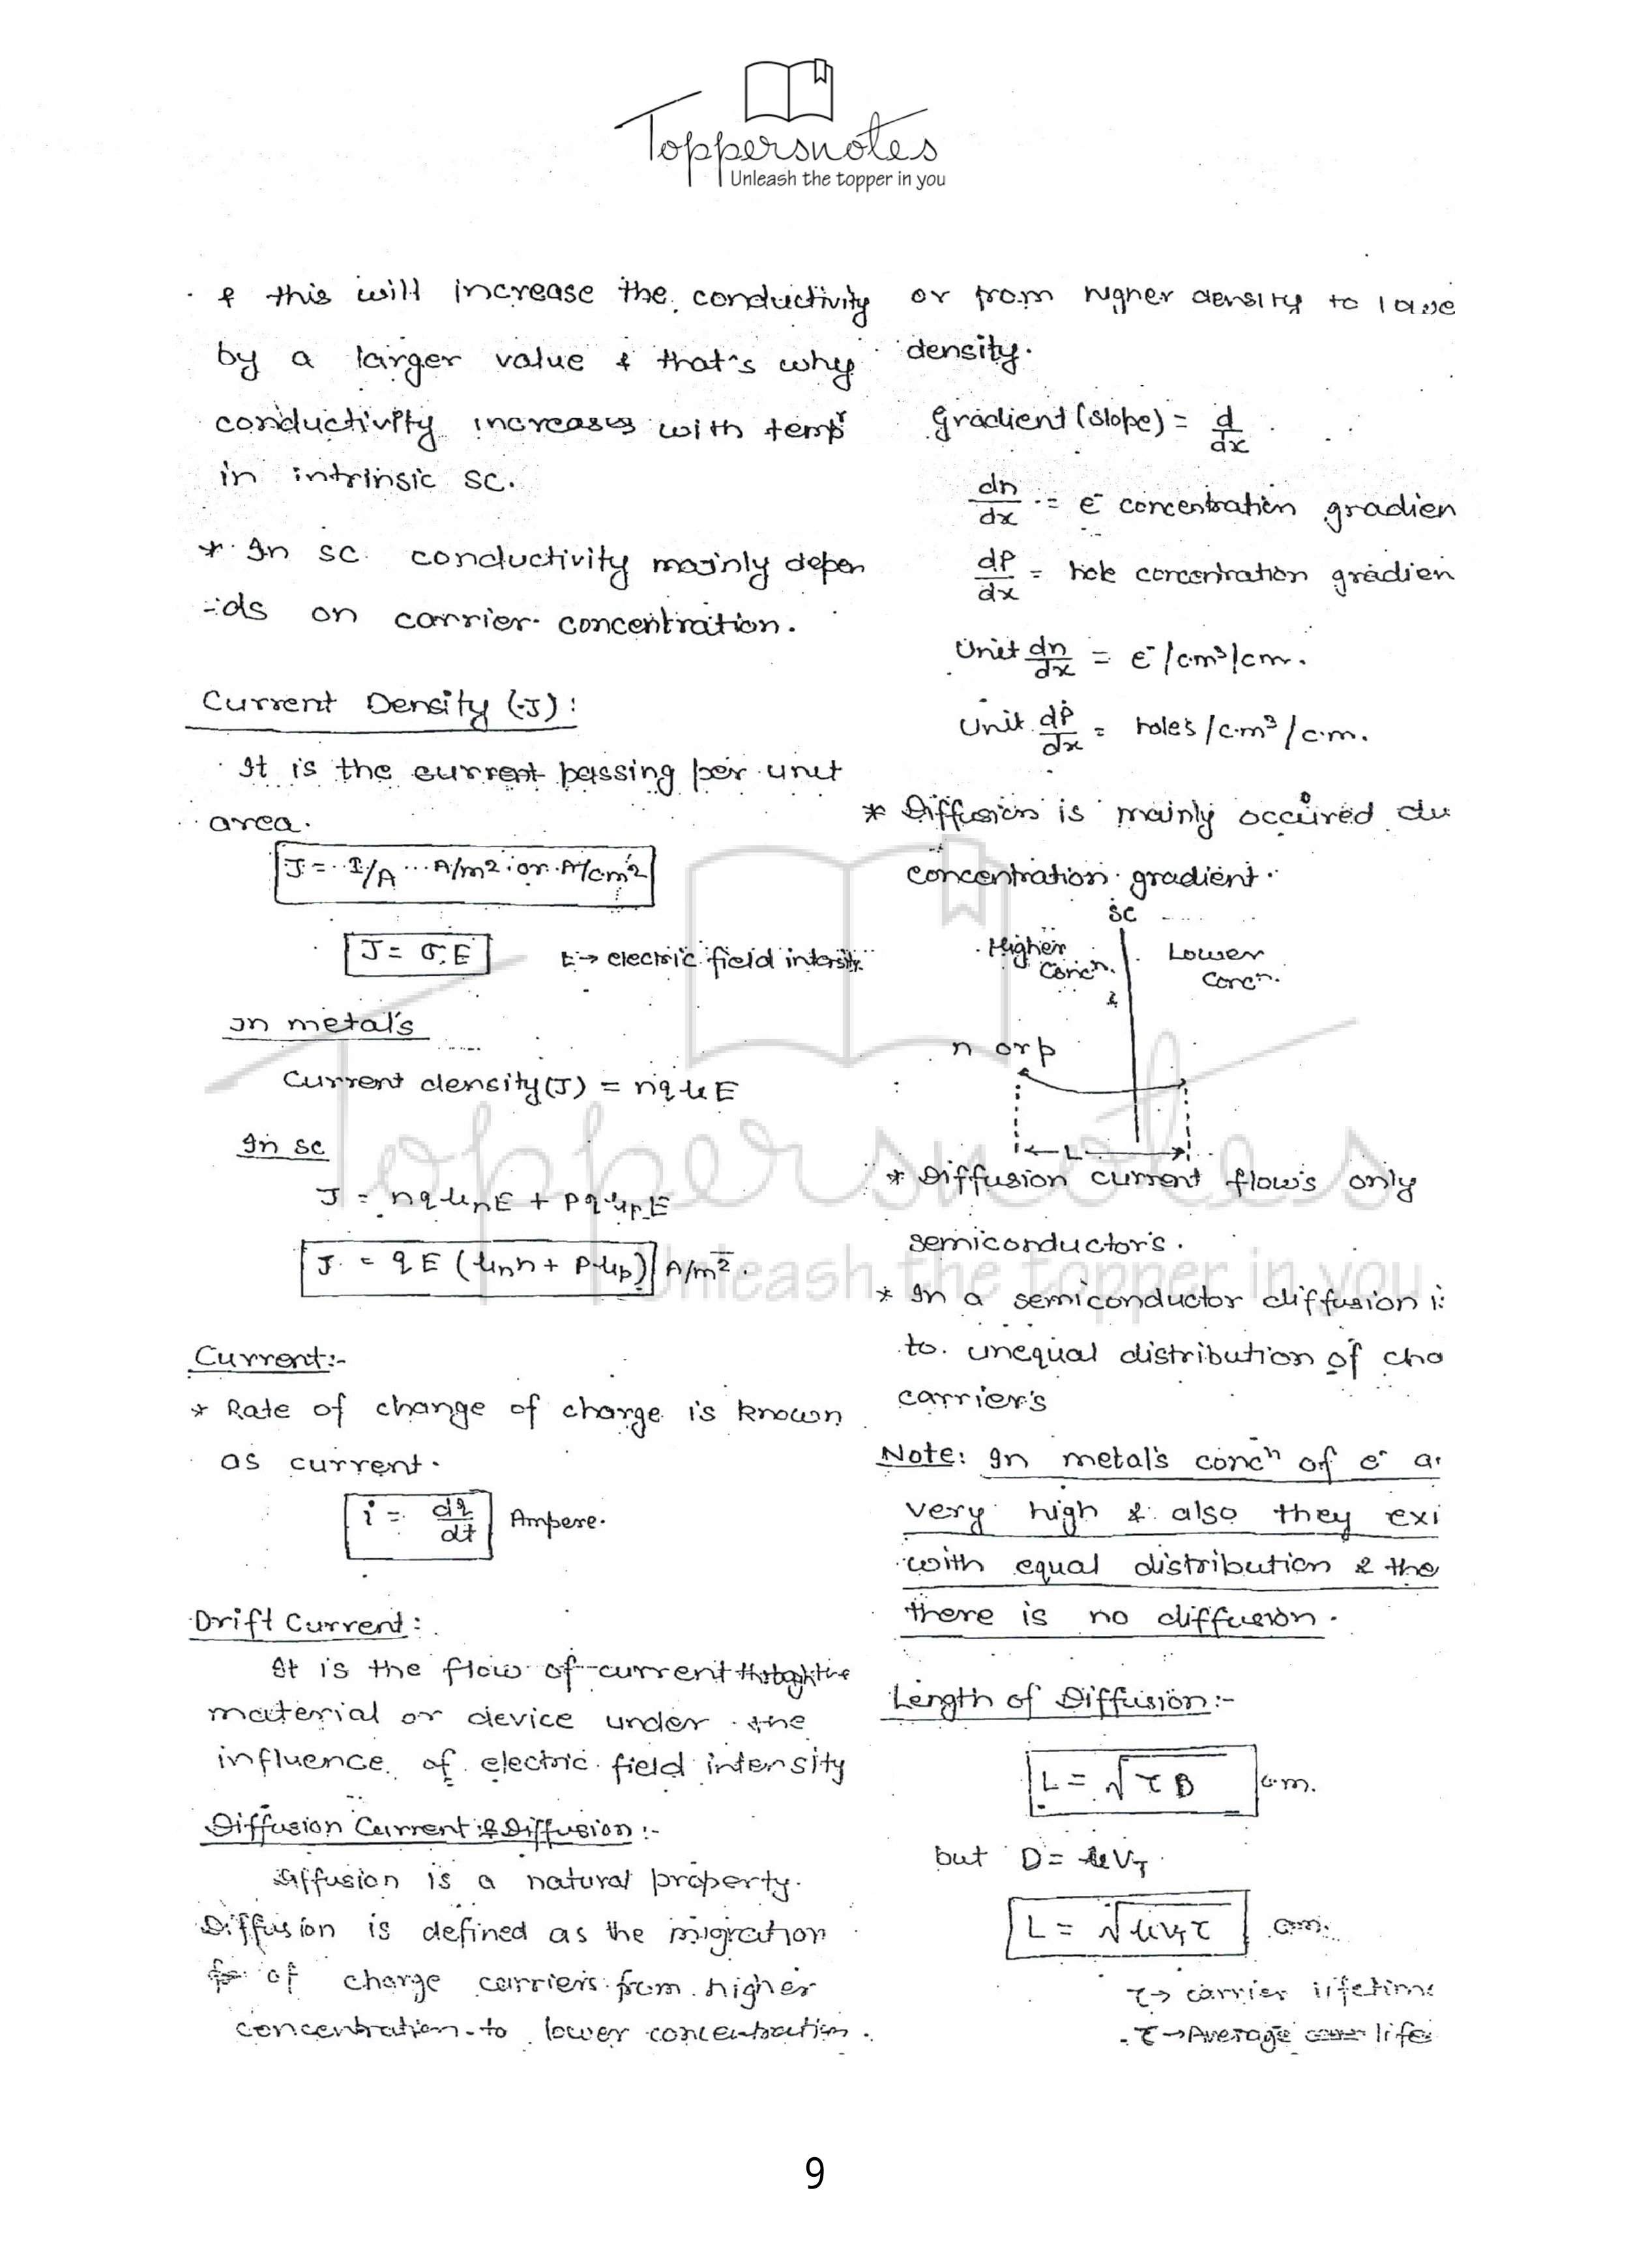 Toppersnotes
Unleash the topper in you
& this will increase the conductivity
by a larger value & that's why
conductivity increases with tempr
in intrinsic sc.
* In sc conductivity mainly depen
=ds on carrier concentration.
Current Density (J):
It is the current passing per unit
area.
J = I/A ... A/m2 or A/cm2
J = σ.E E→ electric field intensity
In metal's
Current density(J) = nqμE
In sc
J = nqμnE + pqμpE
J = qE (μnn + pμp) A/m2.
Current:-
* Rate of change of charge is known
as current.
i = dq/dt Ampere.
Drift Current:
It is the flow of current through the
material or device under the
influence of electric field intensity
Diffusion Current & Diffusion:-
Diffusion is a natural property.
Diffusion is defined as the migration
of charge carriers from higher
concentration to lower concentration.
or from higher density to lowe
density.
Gradient (slope) = d/dx
dn/dx = e- concentration gradien
dP/dx = hole concentration gradien
Unit dn/dx = e-/cm3/cm.
Unit dP/dx = holes/cm3/cm.
* Diffusion is mainly occured du
concentration gradient.
sc
Higher Concn. Lower Concn.
n or p
L
* Diffusion current flow's only
semiconductor's.
* In a semiconductor diffusion i
to unequal distribution of cha
carrier's
Note: In metal's concn of e- a
very high & also they exi
with equal distribution & the
there is no diffusion.
Length of Diffusion:-
L = √τD cm.
but D = μVT
L = √μVTτ cm.
τ→ carrier lifetime
τ→ Average life
Toppersnotes
Unleash the topper in you
9